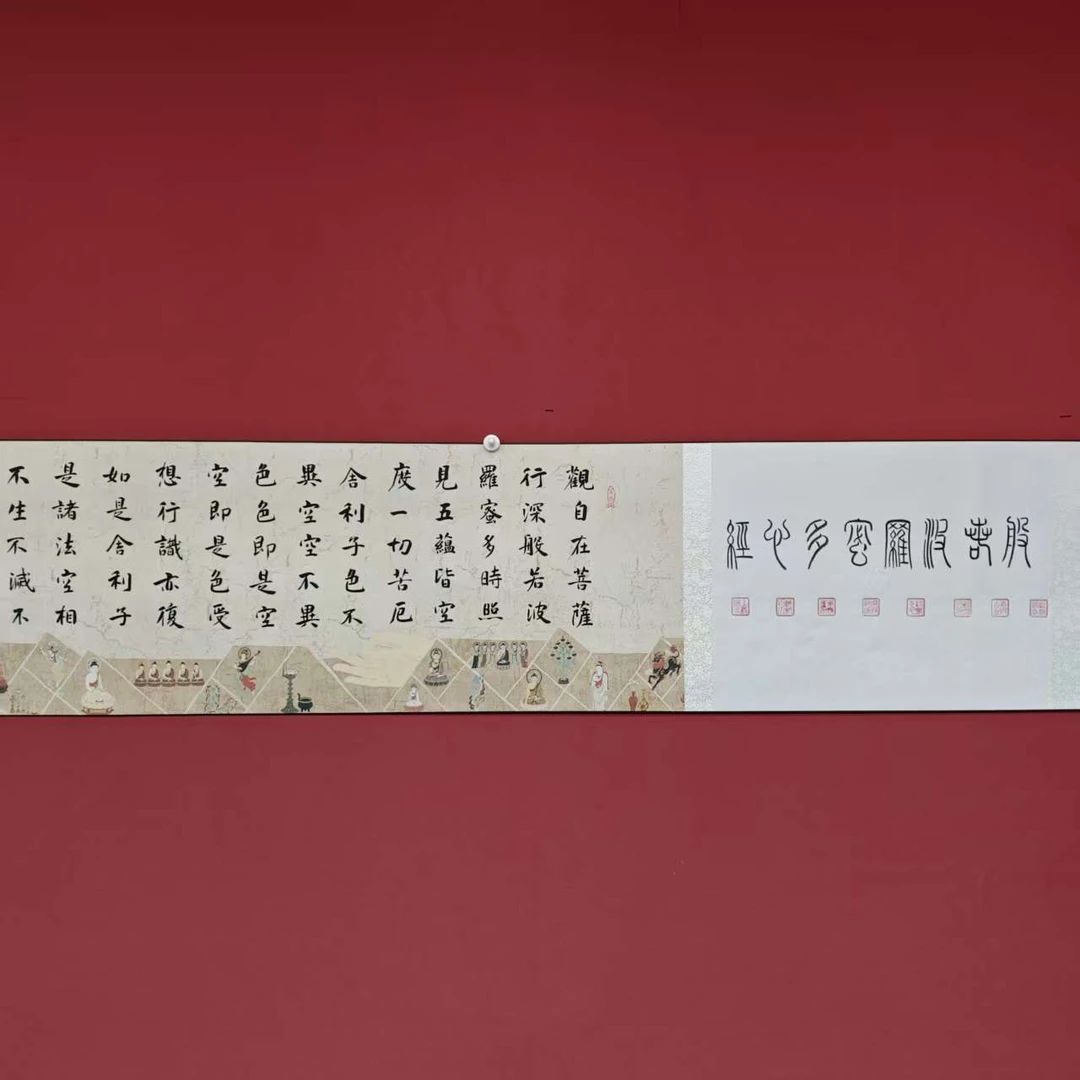 般若波羅密多心經
觀自在菩薩
行深般若波
羅蜜多時照
見五蘊皆空
度一切苦厄
舍利子色不
異空空不異
色色即是空
空即是色受
想行識亦復
如是舍利子
是諸法空相
不生不滅不